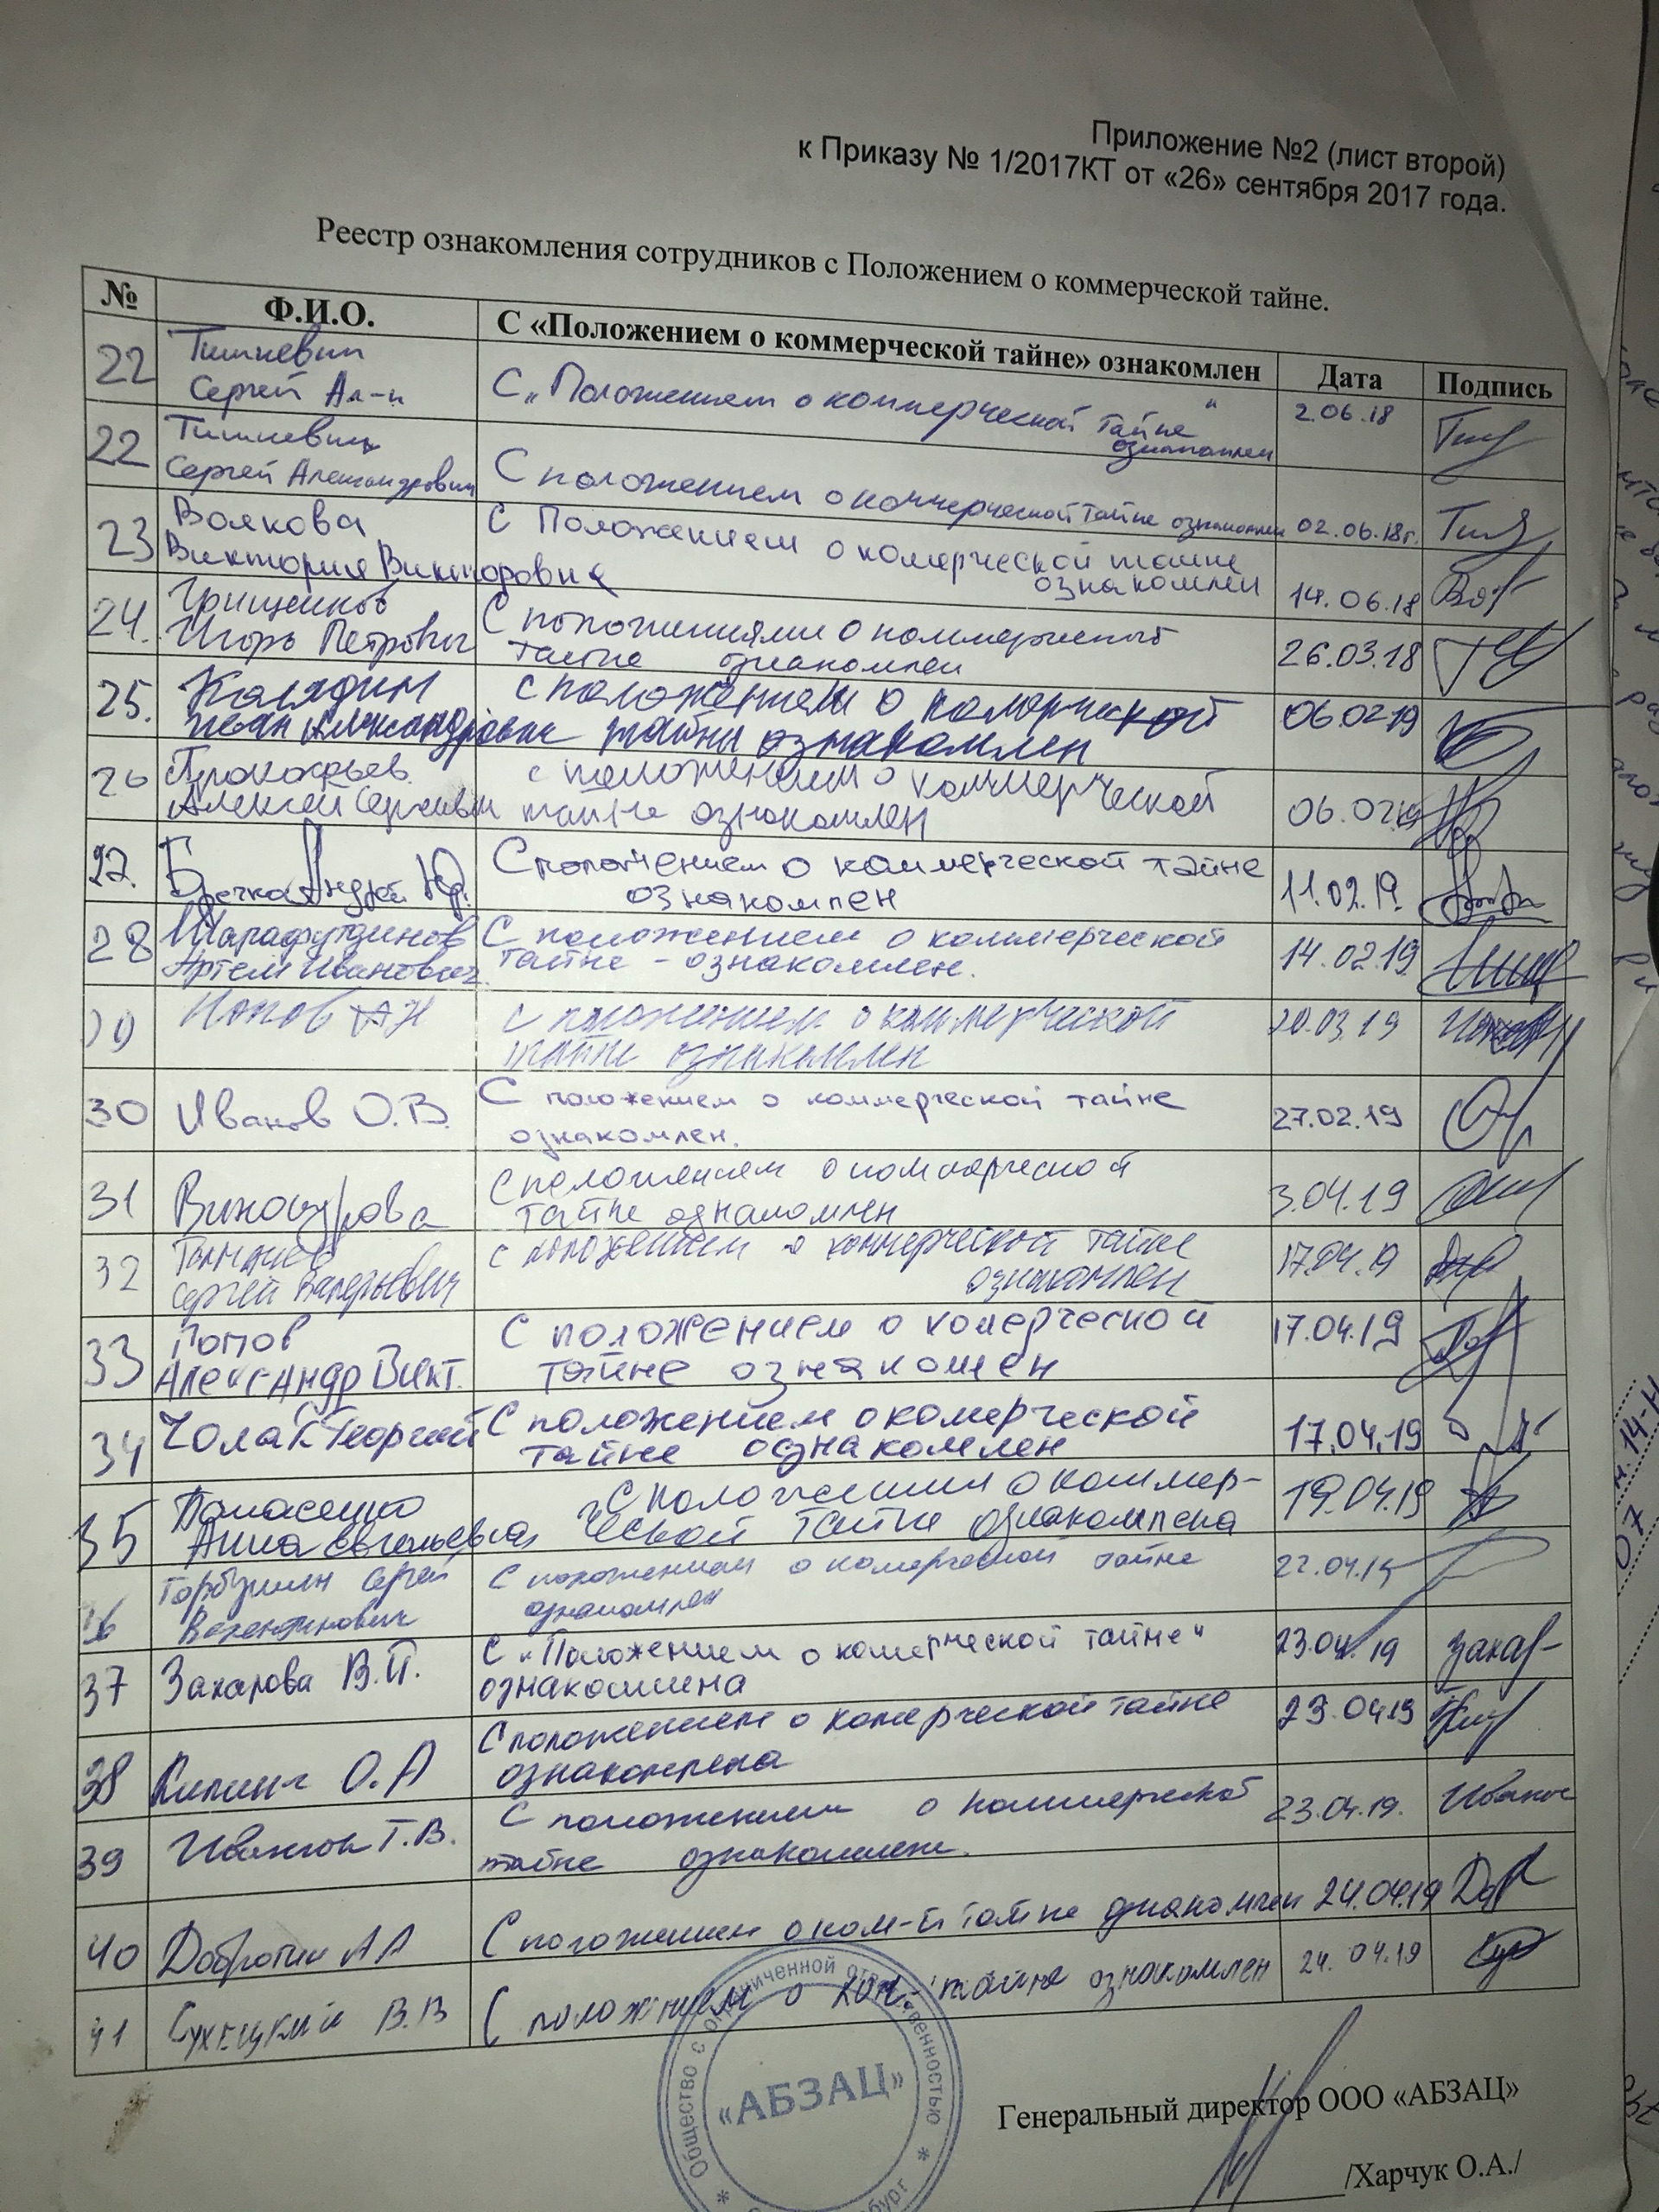 Приложение №2 (лист второй)
к Приказу № 1/2017КТ от «26» сентября 2017 года.
Реестр ознакомления сотрудников с Положением о коммерческой тайне.
№ Ф.И.О. С «Положением о коммерческой тайне» ознакомлен Дата Подпись
22 Тишкевич
Сергей Ал-ч С „Положением о коммерческой тайне“ 2.06.18
ознакомлен
22 Тишкевич
Сергей Александрович С положением о коммерческой тайне ознакомлен 02.06.18г.
23 Волкова С Положением о комерческой тайне
Виктория Викторовна ознакомлен 14.06.18
24. Грищенков С положениями о коммерческой
Игорь Петрович тайне ознакомлен 26.03.18
25. Калядин с положением о комерческой 06.02.19
Иван Александрович тайны ознакомлен
26 Прокофьев с положением о коммерческой
Алексей Сергеевич тайне ознакомлен 06.02.19
27. Андрей Юр. С положением о коммерческой тайне
ознакомлен 11.02.19.
28 Шарафутдинов С положением о коммерческой
Артём Иванович тайне - ознакомлен. 14.02.19
29 Попов с положением о коммерческой 20.03.19
тайне ознакомлен
30 Иванов О.В. С положением о коммерческой тайне 27.02.19
ознакомлен.
31 Винокурова С положением о коммерческой 3.04.19
тайне ознакомлен
32 с положением о коммерческой тайне 17.04.19
Сергей Валерьевич ознакомлен
33 Попов С положением о комерческой 17.04.19
Александр Викт. тайне ознакомен
34 Чолак Георгий С положением о комерческой 17.04.19
тайне ознакомлен
35 Панасенко С положением о коммер- 19.04.19
Анна Евгеньевна ческой тайне ознакомлена
36 Горбунин Сергей С положением о комерческой тайне 22.04.19
Валентинович ознакомлен
37 Захарова В.П. С «Положением о комерческой тайне“ 23.04.19 Захар-
ознакомлена
38 О.А С положением о комерческой тайне 23.04.19
ознакомлена
39 Иванков Г.В. С положением о коммерческой 23.04.19.
тайне ознакомлен.
40 Добротин А А С положением о ком-й тайне ознакомлен 24.04.19
41 Сухецкий В.В С положением о ком. тайне ознакомлен 24.04.19
Общество с ограниченной ответственностью
«АБЗАЦ»
Генеральный директор ООО «АБЗАЦ»
/Харчук О.А./